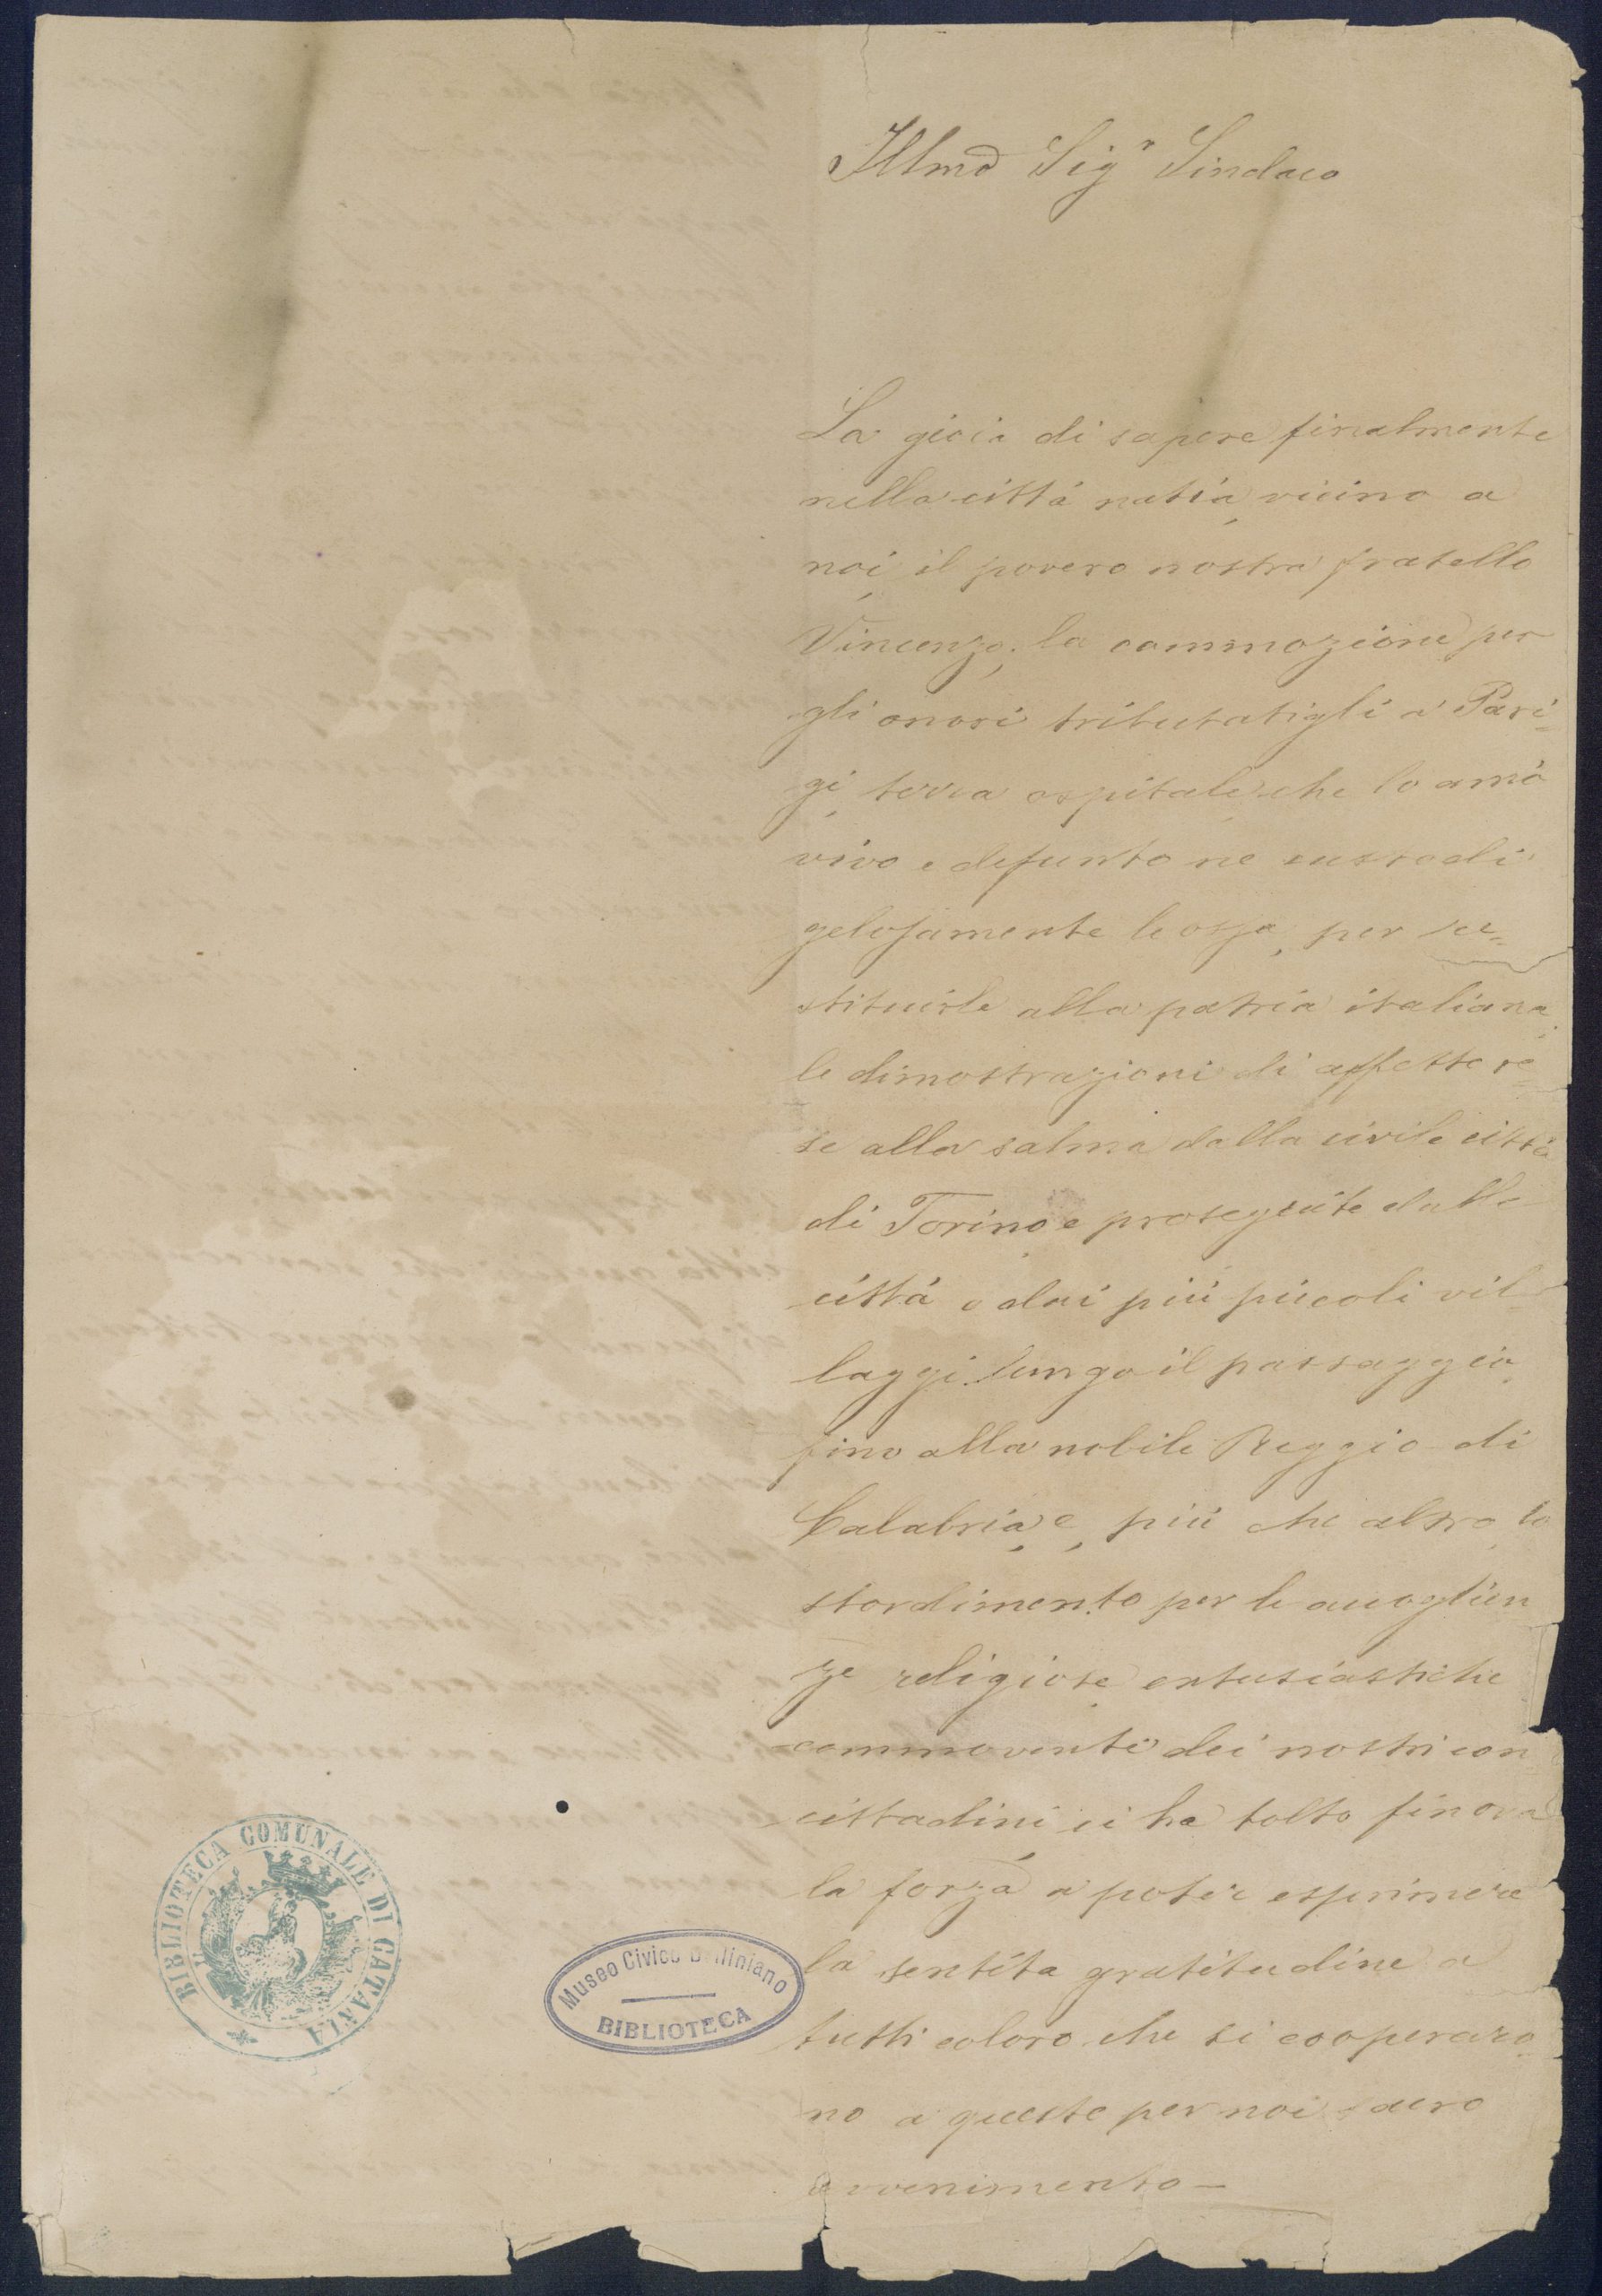 Illmo Sigr Sindaco
La gioia di sapere finalmente
nella città natìa, vicino a
noi, il povero nostro fratello
Vincenzo; la commozione per
gli onori tributatigli a Pari=
gi, terra ospitale che lo amò
vivo e defunto ne custodì
gelosamente le ossa, per re=
stituirle alla patria italiana,
le dimostrazioni di affetto re=
se alla salma dalla civile città
di Torino e proseguite dalle
città e dai più piccoli vil=
laggi lungo il passaggio,
fino alla nobile Reggio di
Calabria, e, più che altro, lo
stordimento per le accoglien
ze religiose entusiastiche
commoventi dei nostri con
cittadini, ci ha tolto finora
la forza a poter esprimere
la sentita gratitudine a
tutti coloro che si cooperaro=
no a questo per noi sacro
avvenimento —
BIBLIOTECA COMUNALE DI CATANIA
Museo Civico Belliniano
BIBLIOTECA